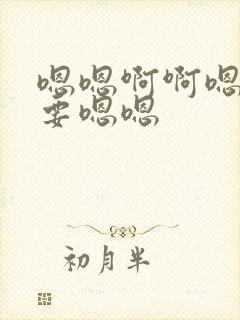 嗯嗯啊啊嗯
要嗯嗯
初月半